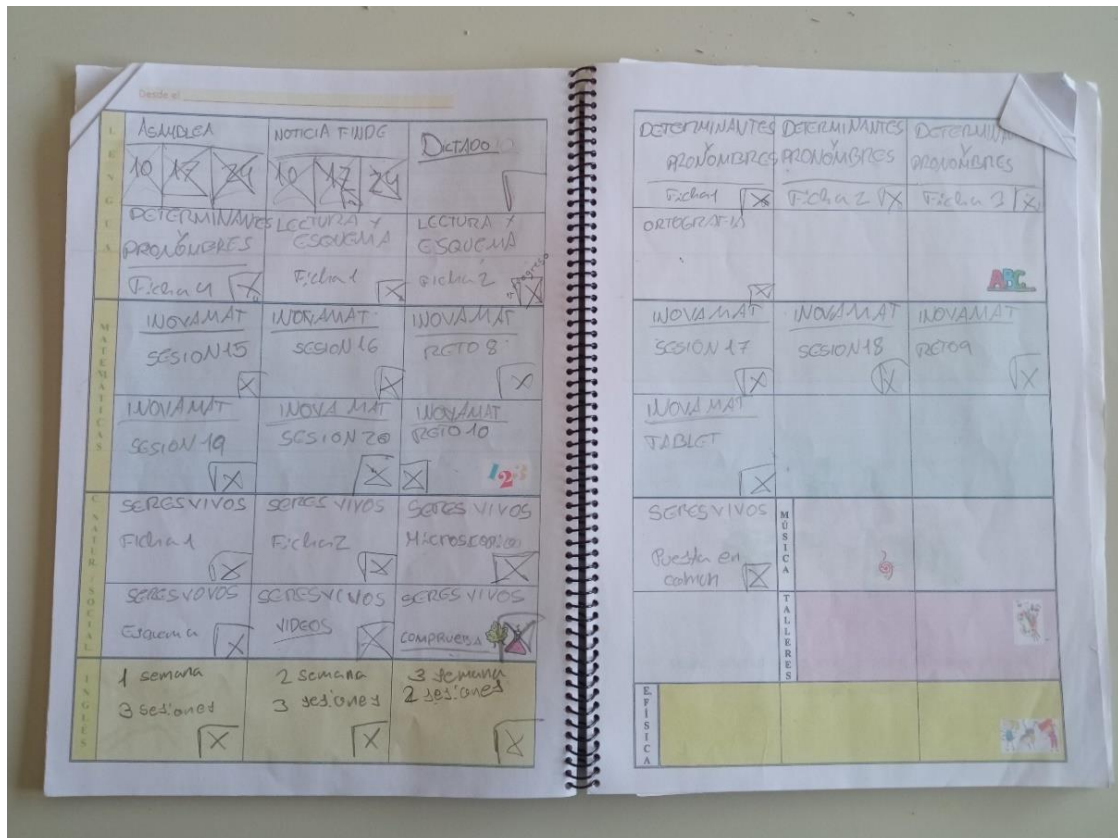 Desde el
LENGUA
ASAMBLEA
10 17 24
NOTICIA FINDE
10 17 24
DICTADO
DETERMINANTES
Y
PRONOMBRES
Ficha 4
LECTURA Y
ESQUEMA
Ficha 1
LECTURA Y
ESQUEMA
Ficha 2
MATEMATICAS
INOVAMAT
SESION 15
INOVAMAT
SESION 16
INOVAMAT
RETO 8
INOVAMAT
SESION 19
INOVA MAT
SESION 20
INOVAMAT
RETO 10
123
C. NATUR/SOCIAL
SERES VIVOS
Ficha 1
SERES VIVOS
Ficha 2
SERES VIVOS
Microscopio
SERES VOVOS
Esquema
SERES VIVOS
VIDEOS
SERES VIVOS
COMPRUEBA
INGLES
1 semana
3 sesiones
2 semana
3 sesiones
3 semana
2 sesiones
DETERMINANTES
Y
PRONOMBRES
Ficha 1
DETERMINANTES
Y
PRONOMBRES
Ficha 2
Y
PRONOMBRES
Ficha 3
ORTOGRAFIA
ABC
INOVAMAT
SESION 17
INOVAMAT
SESION 18
INOVAMAT
RETO 9
INOVA MAT
TABLET
SERES VIVOS
Puesta en
comun
MÚSICA
TALLERES
E. FÍSICA